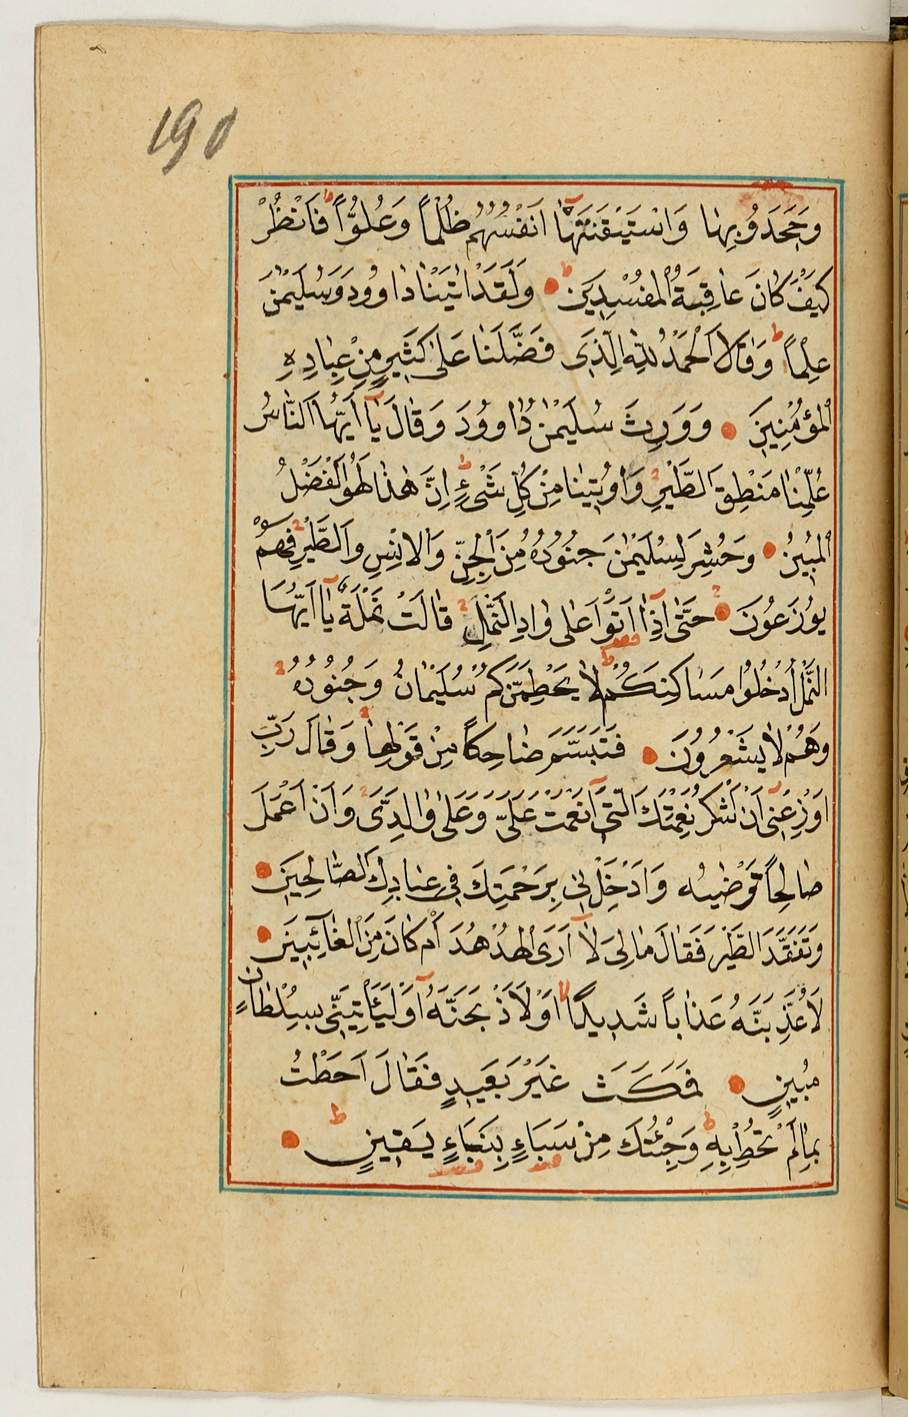 190
وَجَحَدُوا بِهَا وَاسْتَيْقَنَتْهَٓا اَنْفُسُهُمْ ظُلْمًا وَعُلُوًّا فَانْظُرْ
كَيْفَ كَانَ عَاقِبَةُ الْمُفْسِدِينَ وَلَقَدْ اٰتَيْنَا دَاوُودَ وَسُلَيْمٰنَ
عِلْمًا وَقَالَا الْحَمْدُ لِلّٰهِ الَّذِى فَضَّلَنَا عَلٰى كَثِيرٍ مِنْ عِبَادِهِ
الْمُؤْمِنِينَ وَوَرِثَ سُلَيْمٰنُ دَاوُودَ وَقَالَ يَٓا اَيُّهَا النَّاسُ
عُلِّمْنَا مَنْطِقَ الطَّيْرِ وَاُوتِينَا مِنْ كُلِّ شَىْءٍ اِنَّ هٰذَا لَهُوَ الْفَضْلُ
الْمُبِينُ وَحُشِرَ لِسُلَيْمٰنَ جُنُودُهُ مِنَ الْجِنِّ وَالْاِنْسِ وَالطَّيْرِ فَهُمْ
يُوزَعُونَ حَتّٰى اِذَٓا اَتَوْا عَلٰى وَادِ النَّمْلِ قَالَتْ نَمْلَةٌ يَٓا اَيُّهَا
النَّمْلُ ادْخُلُوا مَسَاكِنَكُمْ لَا يَحْطِمَنَّكُمْ سُلَيْمَانُ وَجُنُودُهُ
وَهُمْ لَا يَشْعُرُونَ فَتَبَسَّمَ ضَاحِكًا مِنْ قَوْلِهَا وَقَالَ رَبِّ
اَوْزِعْنِى اَنْ اَشْكُرَ نِعْمَتَكَ الَّتِٓى اَنْعَمْتَ عَلَىَّ وَعَلٰى وَالِدَىَّ وَاَنْ اَعْمَلَ
صَالِحًا تَرْضٰيهُ وَاَدْخِلْنِى بِرَحْمَتِكَ فِى عِبَادِكَ الصَّالِحِينَ
وَتَفَقَّدَ الطَّيْرَ فَقَالَ مَا لِىَ لَٓا اَرَى الْهُدْهُدَ اَمْ كَانَ مِنَ الْغَائِبِينَ
لَاُعَذِّبَنَّهُ عَذَابًا شَدِيدًا اَوْ لَاَذْبَحَنَّهُ اَوْ لَيَأْتِيَنِّى بِسُلْطَانٍ
مُبِينٍ فَمَكَثَ غَيْرَ بَعِيدٍ فَقَالَ اَحَطْتُ
بِمَا لَمْ تُحِطْ بِهِ وَجِئْتُكَ مِنْ سَبَاءٍ بِنَبَاءٍ يَقِينٍ